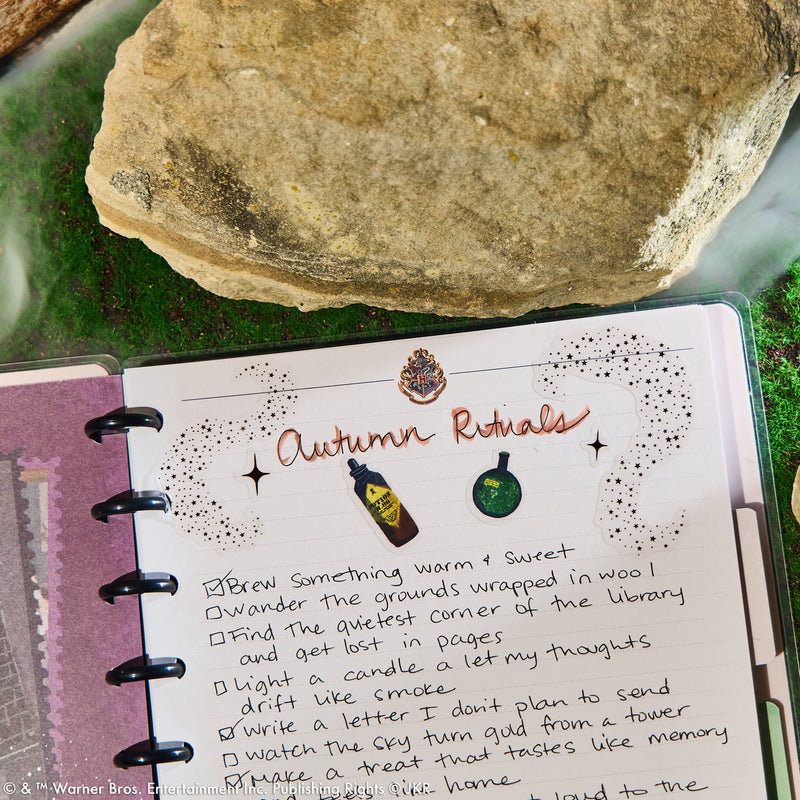 Autumn Rituals
☑ Brew something warm & sweet
☐ Wander the grounds wrapped in wool
☐ Find the quietest corner of the library
and get lost in pages
☐ Light a candle a let my thoughts
drift like smoke
☑ Write a letter I don't plan to send
☐ Watch the sky turn gold from a tower
☑ Make a treat that tastes like memory
home
loud to the
© & ™ Warner Bros. Entertainment Inc. Publishing Rights © JKR.